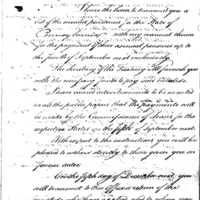 I have the honor to transmit you a
list of the invalid pensioners in the State of
Pennsylvania with every amount thereon
for the payment of their annual pensions up to
the fourth of September next inclusively.
The Secretary of the Treasury will furnish you
with the necessary funds to pay said Invalids.
I have caused advertisements to be inserted
in all the public papers that the payments will
be made by the Commissioners of Loans for the
respective States on the fifth of September next.
With respect to the instructions you will be
pleased to adhere strictly to those given you on
former dates.
On the fifth day of December next you
will transmit to this office a return of the
invalids who have applied and to whom you